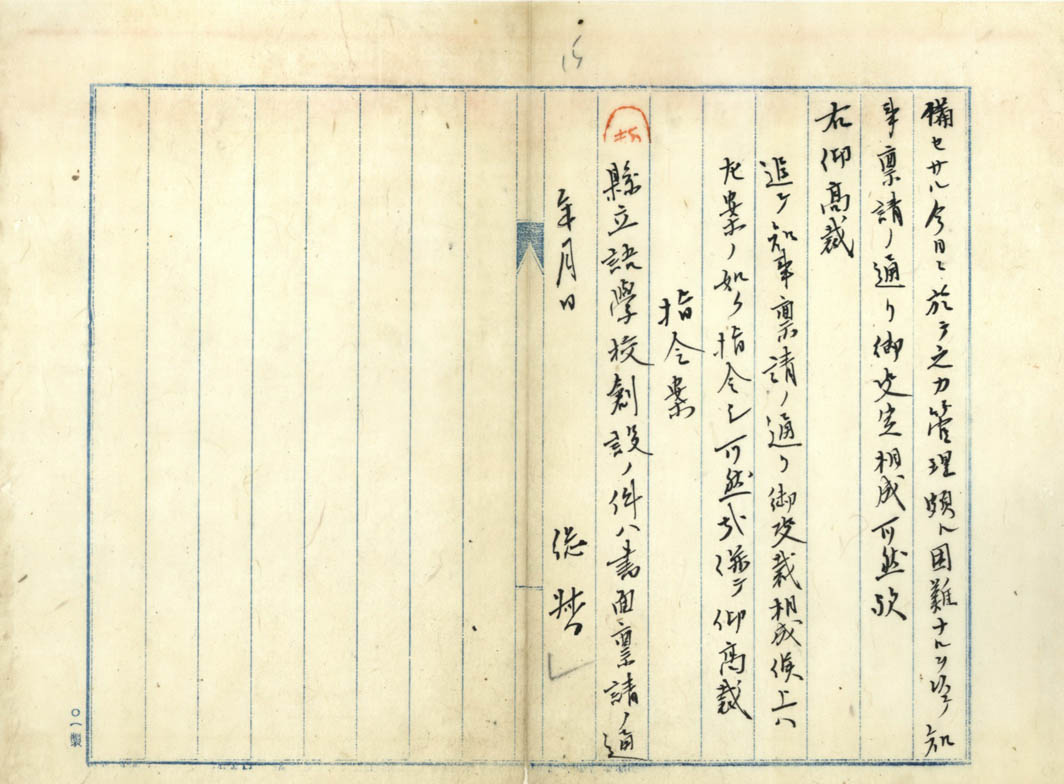 備セサル今日ニ於テ之カ管理頗ル困難ナルニ以テ知
事稟請ノ通リ御決定相成可然歟
右仰高裁
追テ知事稟請ノ通リ御決裁相成候上ハ
左案ノ如ク指令シ可然哉併テ仰高裁
指令案
縣立語學校創設ノ件ハ書面稟請ノ通
年月日
総督
〇一製